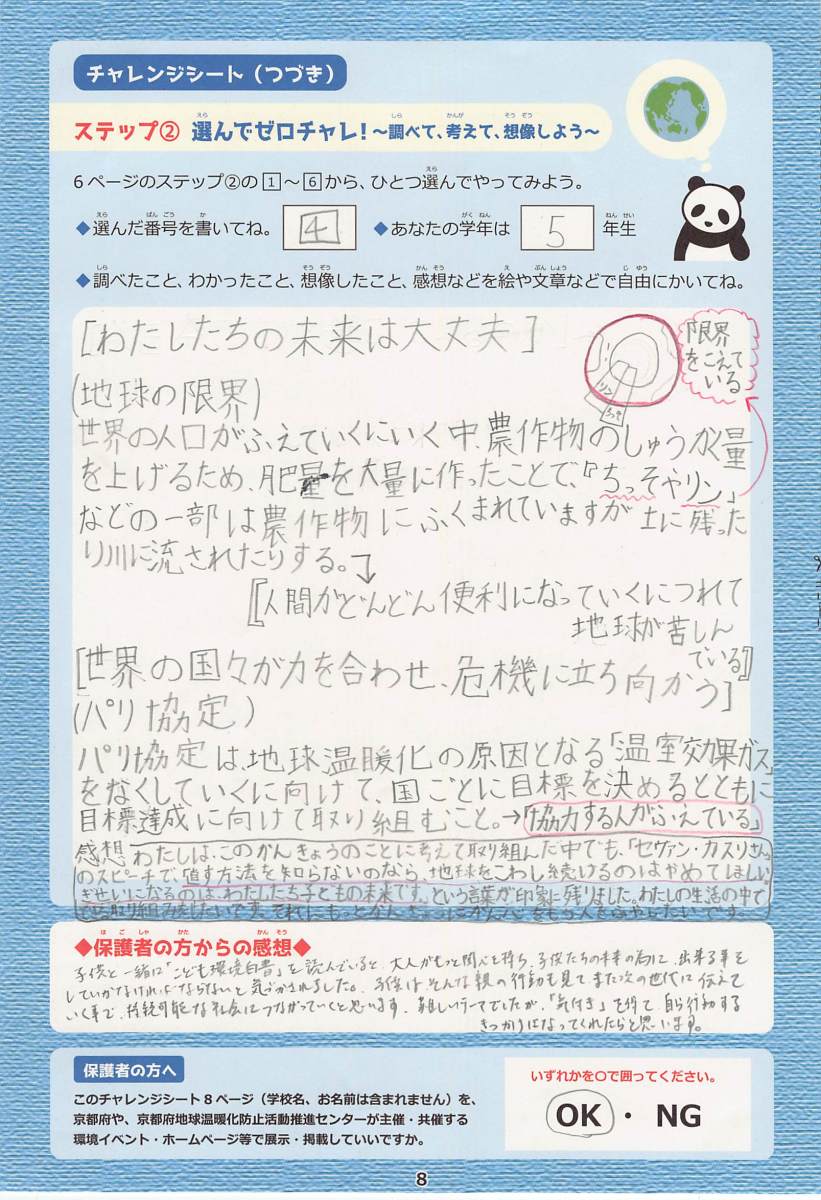 チャレンジシート（つづき）
ステップ② 選んでゼロチャレ！～調べて、考えて、想像しよう～
6ページのステップ②の1～6から、ひとつ選んでやってみよう。
◆選んだ番号を書いてね。 4 ◆あなたの学年は 5 年生
◆調べたこと、わかったこと、想像したこと、感想などを絵や文章などで自由にかいてね。
[わたしたちの未来は大丈夫]
リン
ちっそ
限界
をこえて
いる
(地球の限界)
世界の人口がふえていくにいく中、農作物のしゅうかく量
を上げるため、肥量を大量に作ったことで、『ちっそやリン』
などの一部は農作物にふくまれていますが土に残った
り川に流されたりする。
『人間がどんどん便利になっていくにつれて
地球が苦しん
でいる』
[世界の国々が力を合わせ、危機に立ち向かう]
(パリ協定)
パリ協定は地球温暖化の原因となる「温室効果ガス」
をなくしていくに向けて、国ごとに目標を決めるとともに
目標達成に向けて取り組むこと。→「協力する人がふえている」
感想 わたしは、このかんきょうのことに考えて取り組んだ中でも、「セヴァン・カスリさん」
のスピーチで、直す方法を知らないのなら、地球をこわし続けるのはやめてほしい。
ぎせいになるのは、わたしたち子どもの未来です。という言葉が印象に残りました。わたしの生活の中で
取り組みをしたいです。それに、もっとかんきょうにかん心をもつ人をふやしたいです。
◆保護者の方からの感想◆
子供と一緒に「こども環境白書」を読んでいると、大人がもっと関心を持ち、子供たちの未来の為に、出来る事を
していかなければならないと気づかされました。子供はそんな親の行動も見て、また次の世代に伝えて
いく事で、持続可能な社会につながっていくと思います。難しいテーマでしたが、「気付き」を得て、自ら行動する
きっかけになってくれたらと思います。
保護者の方へ
このチャレンジシート8ページ（学校名、お名前は含まれません）を、
京都府や、京都府地球温暖化防止活動推進センターが主催・共催する
環境イベント・ホームページ等で展示・掲載していいですか。
いずれかを○で囲ってください。
OK ・ NG
8